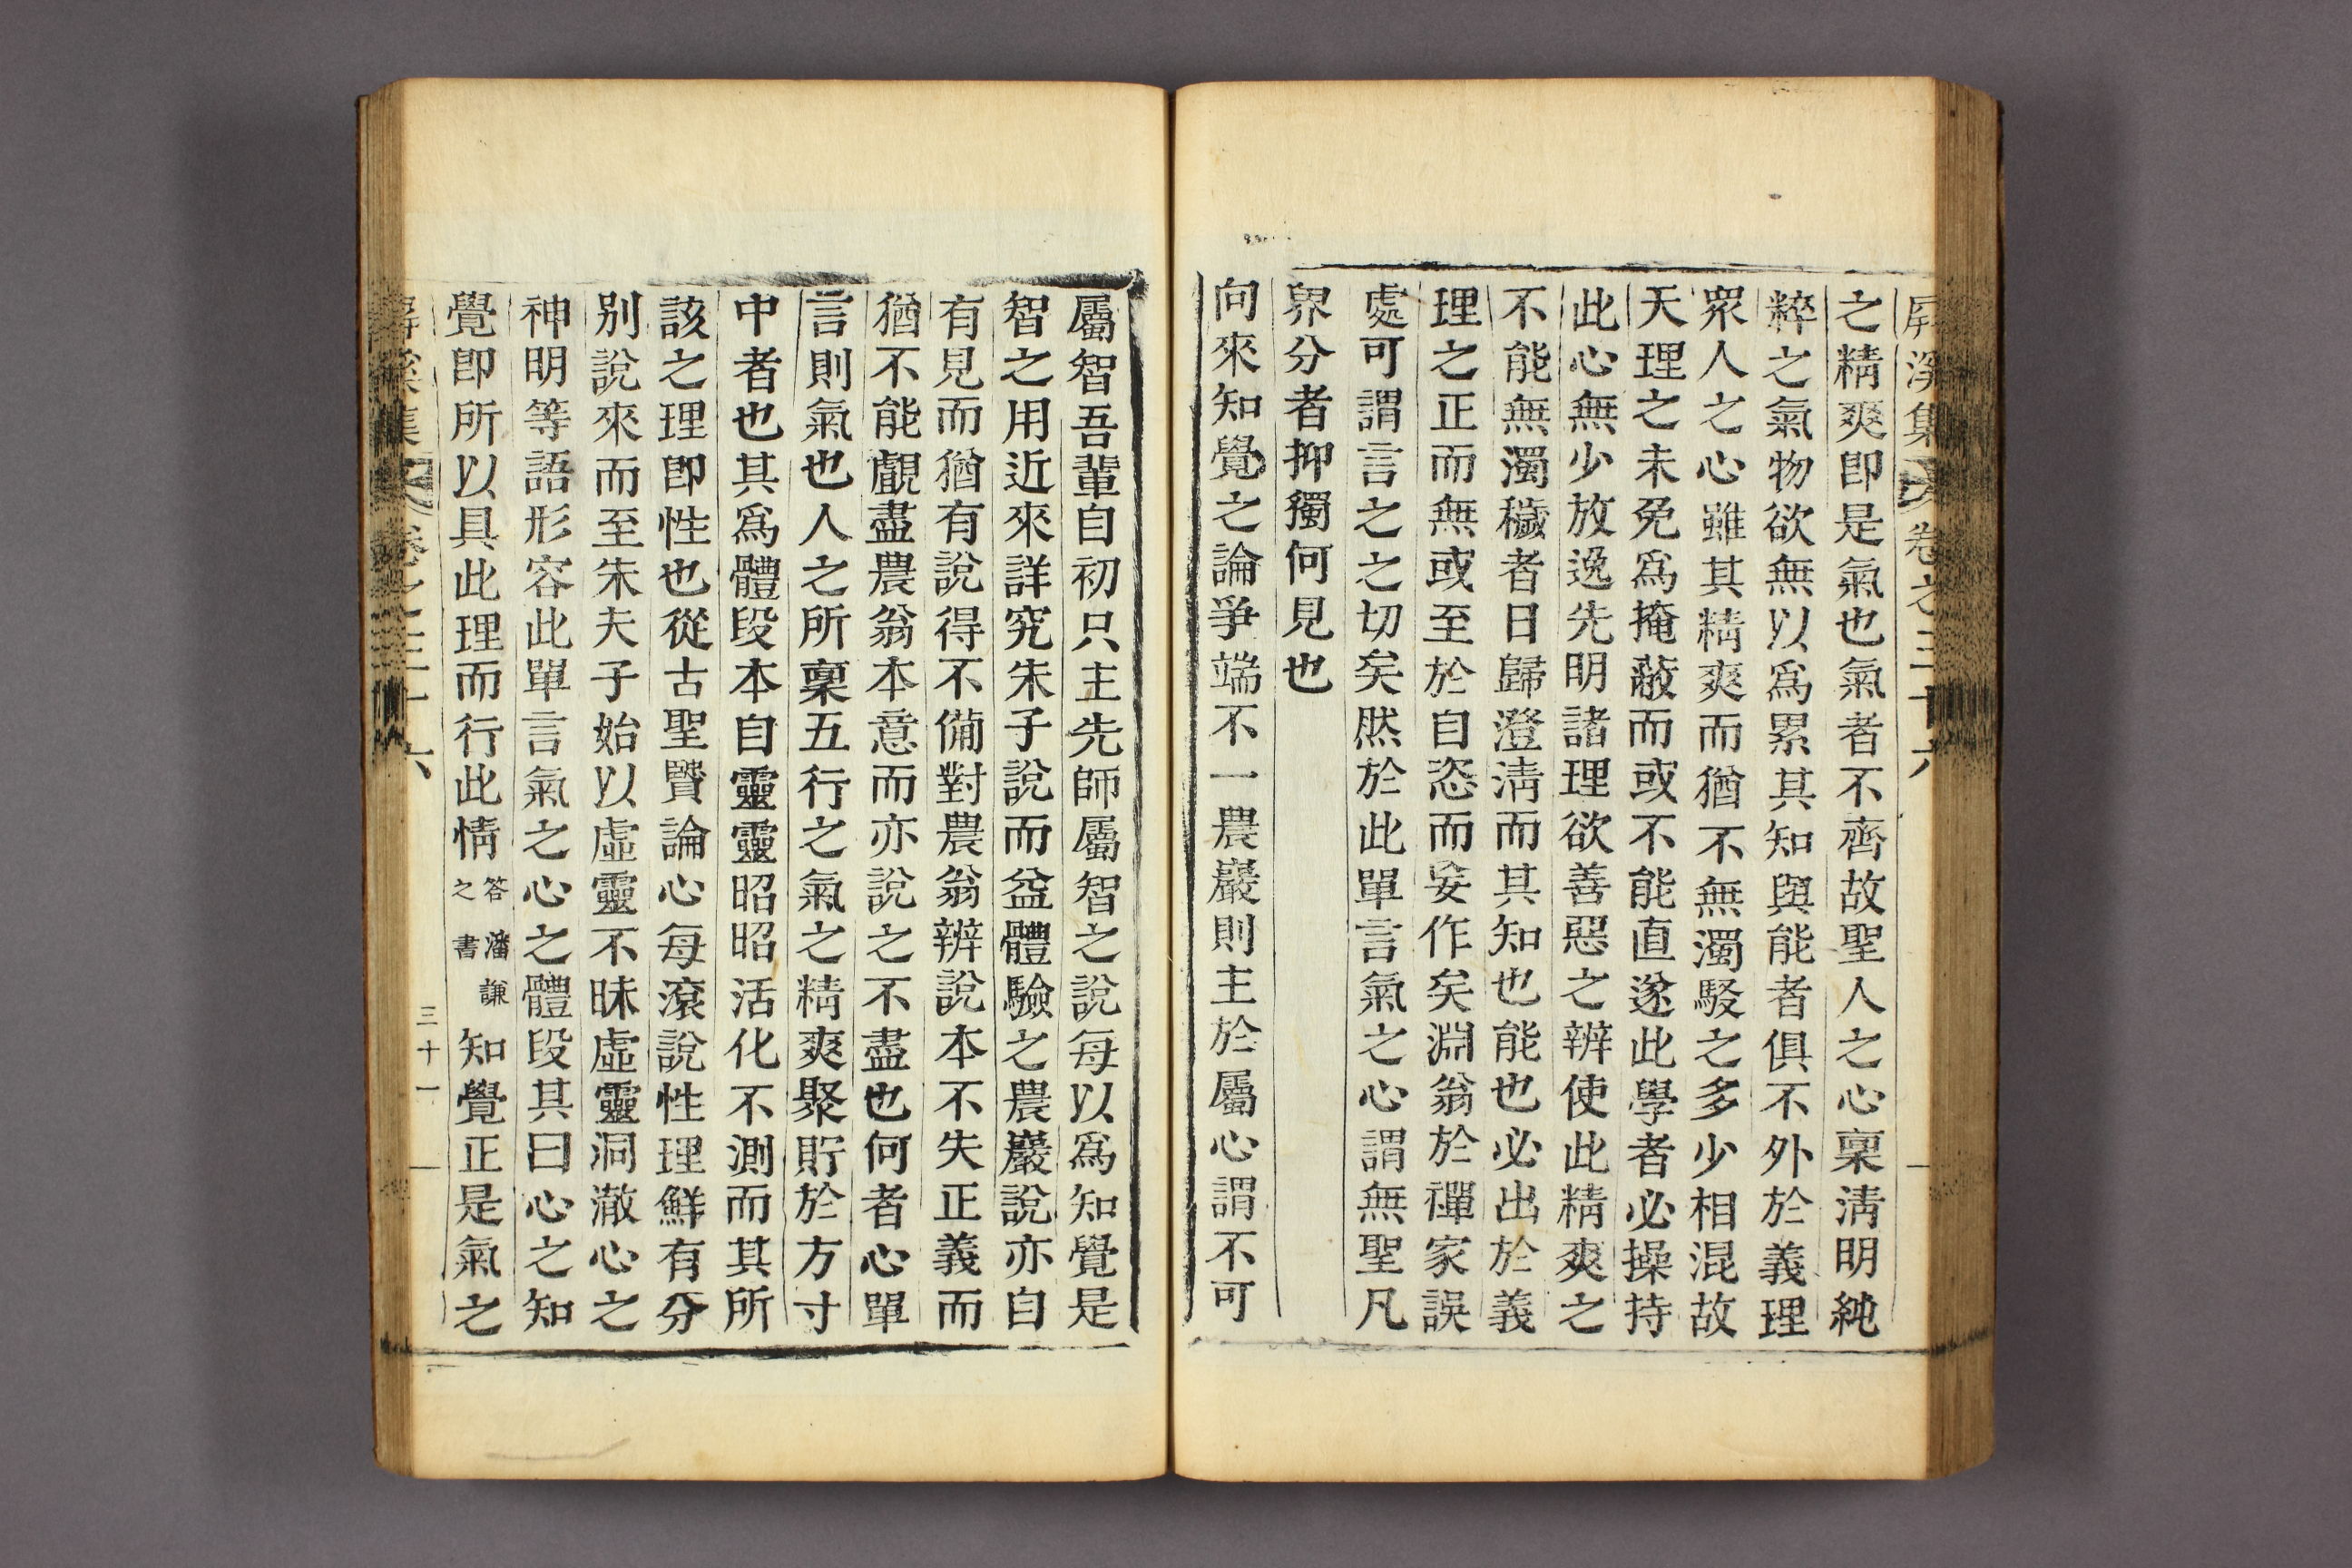 屛溪集
卷之三十六
之精爽卽是氣也氣者不齊故聖人之心稟淸明純
粹之氣物欲無以爲累其知與能者俱不外於義理
衆人之心雖其精爽而猶不無濁駁之多少相混故
天理之未免爲掩蔽而或不能直遂此學者必操持
此心無少放逸先明諸理欲善惡之辨使此精爽之
不能無濁穢者日歸澄淸而其知也能也必出於義
理之正而無或至於自恣而妄作矣淵翁於禪家誤
處可謂言之之切矣然於此單言氣之心謂無聖凡
界分者抑獨何見也
向來知覺之論爭端不一農巖則主於屬心謂不可
屬智吾輩自初只主先師屬智之說每以爲知覺是
智之用近來詳究朱子說而益體驗之農巖說亦自
有見而猶有說得不備對農翁辨說本不失正義而
猶不能覰盡農翁本意而亦說之不盡也何者心單
言則氣也人之所稟五行之氣之精爽聚貯於方寸
中者也其爲體段本自靈靈昭昭活化不測而其所
該之理卽性也從古聖賢論心每滾說性理鮮有分
別說來而至朱夫子始以虛靈不昧虛靈洞澈心之
神明等語形容此單言氣之心之體段其曰心之知
覺卽所以具此理而行此情答潘謙之書知覺正是氣之
屛溪集
卷之三十六
三十一